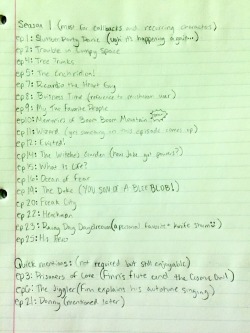 Season 1 (most for callbacks and recurring characters)
ep1: Slumber Party Panic
ep2: Trouble in Lumpy Space
ep4: Tree Trunks
ep5: The Enchiridion!
ep7: Ricardio the Heart Guy
ep8: Business Time
ep9: My Two Favorite People
ep10: Memories of Boom Boom Mountain
ep11: Wizard
ep12: Evicted!
ep14: The Witches Garden
ep15: What Is Life?
ep16: Ocean of Fear
ep19: The Duke (YOU SON OF A BLEEBLOB!)
ep20: Freak City
ep22: Henchman
ep23: Rainy Day Daydream (a personal favorite + knife storm
ep25: His Hero
Quick mentions: (not required but still enjoyable)
ep3: Prisoners of Love (Finn's flute and the Cosmic Owl)
ep6: The Jiggler (Finn explains his autotune singing)
ep21: Donny (mentioned later)